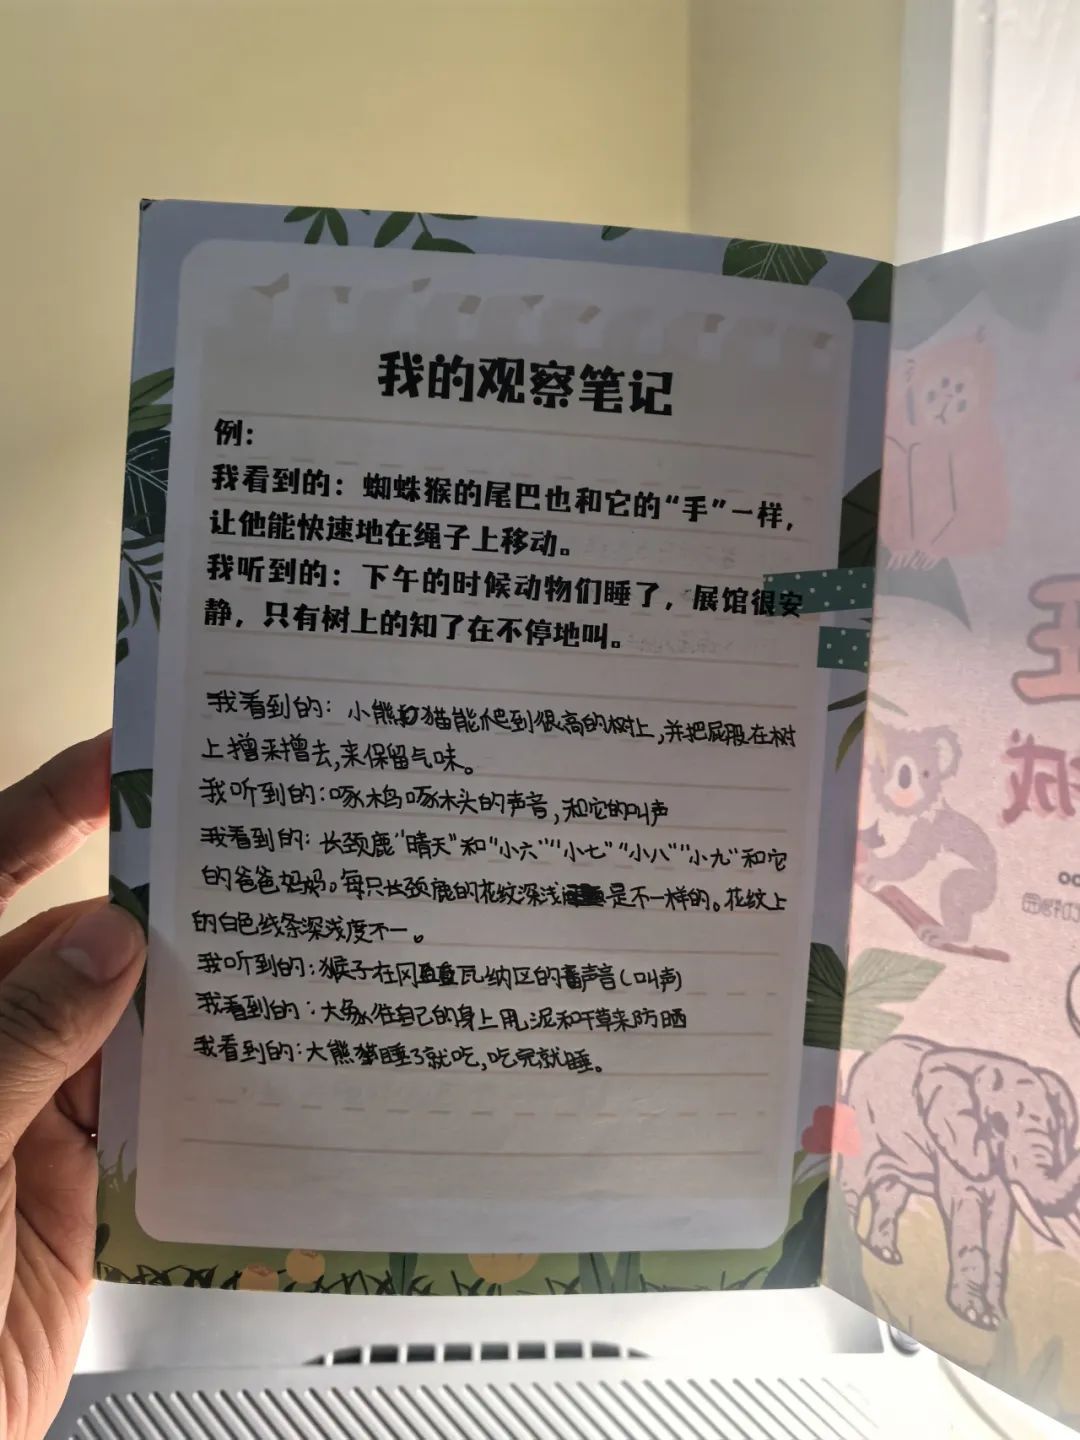 我的观察笔记
例：
我看到的：蜘蛛猴的尾巴也和它的“手”一样，
让他能快速地在绳子上移动。
我听到的：下午的时候动物们睡了，展馆很安
静，只有树上的知了在不停地叫。
我看到的：小熊猫能爬到很高的树上，并把屁股在树
上撞来撞去，来保留气味。
我听到的：啄木鸟啄木头的声音，和它的叫声
我看到的：长颈鹿“晴天”和“小六”“小七”“小八”“小九”和它
的爸爸妈妈。每只长颈鹿的花纹深浅是不一样的。花纹上
的白色线条深浅度不一。
我听到的：猴子在冈瓦纳区的声音（叫声）
我看到的：大象往自己的身上甩泥和干草来防晒
我看到的：大熊猫睡了就吃，吃完就睡。